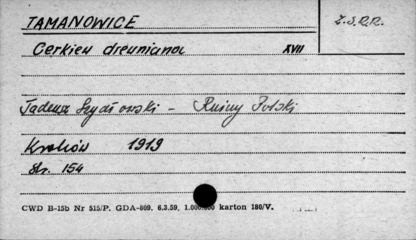 TAMANOWICE
Z.S.R.R.
Cerkiew drewniana XVII
Tadeusz Szydłowski - Ruiny Polski
Kraków 1919
str. 154
CWD B-15b Nr 515/P. GDA-869. 6.3.59. 1.000.000 karton 180/V.